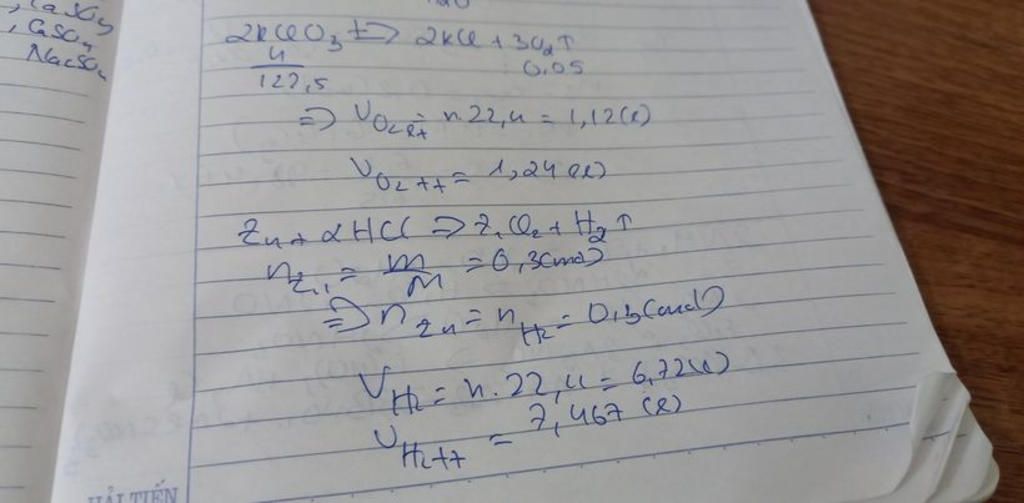 , CaSO4
, CaSO4
Na2SO4
2KClO3 t=> 2KCl + 3O2↑
4
122,5
0.05
=> VO2 lt = n.22,4 = 1,12(l)
VO2 tt = 1,24 (l)
Zn + 2HCl => ZnCl2 + H2↑
nZn = m/M = 0,3(mol)
=> nZn = nH2 = 0,3(mol)
VH2 = n.22,4 = 6,72(l)
VH2 tt = 7,467 (l)
HẢI TIẾN